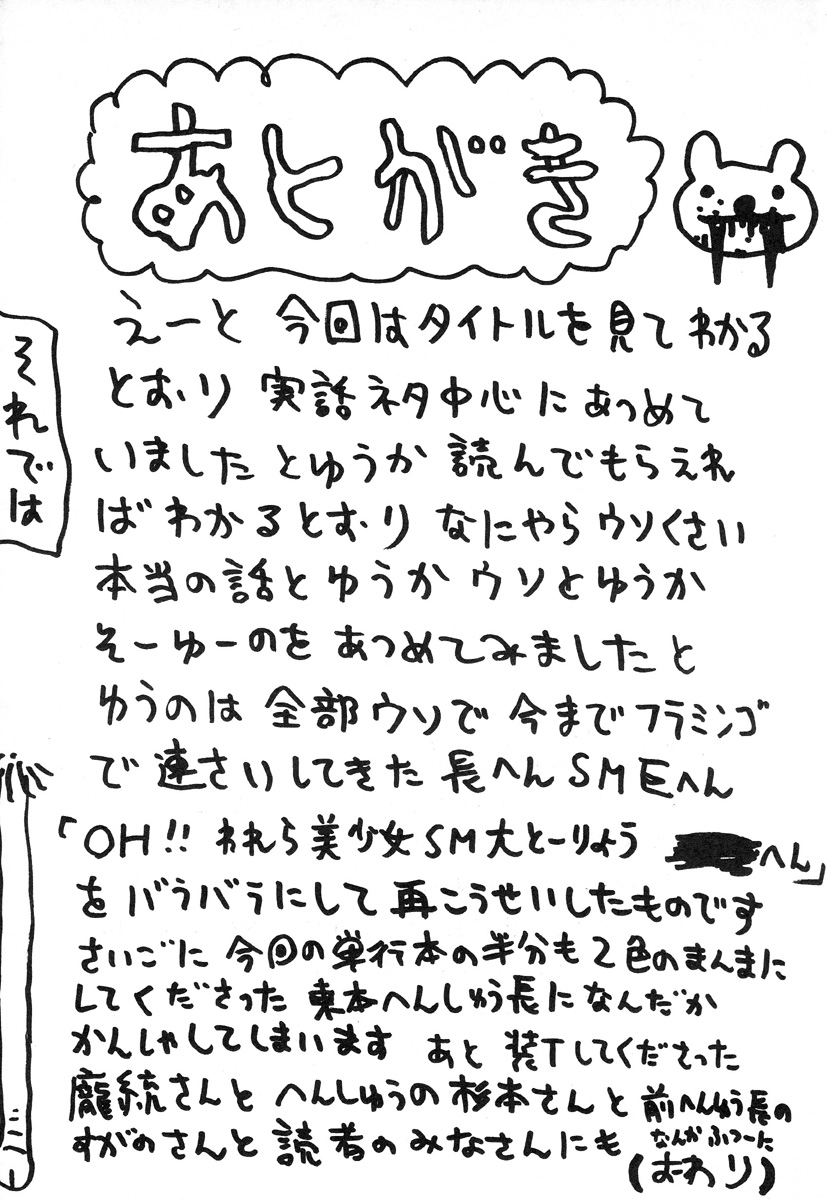 あとがき
えーと 今回はタイトルを見てわかる
とおり 実話ネタ中心にあつめて
いました とゆうか 読んでもらえれ
ば わかるとおり なにやらウソくさい
本当の話とゆうか ウソとゆうか
そーゆーのを あつめてみましたと
ゆうのは 全部ウソで 今までフラミンゴ
で 連さいしてきた 長へんSM巨へん
「OH!! われら美少女SM大とーりょう へん」
を バラバラにして 再こうせいしたものです
さいごに 今回の単行本の半分も2色のまんまに
してくださった 東本へんしゅう長になんだか
かんしゃしてしまいます あと 装丁してくださった
龐統さんと へんしゅうの杉本さんと 前へんしゅう長の
すがのさんと 読者のみなさんにも なんかふつーに
(おわり)
それでは